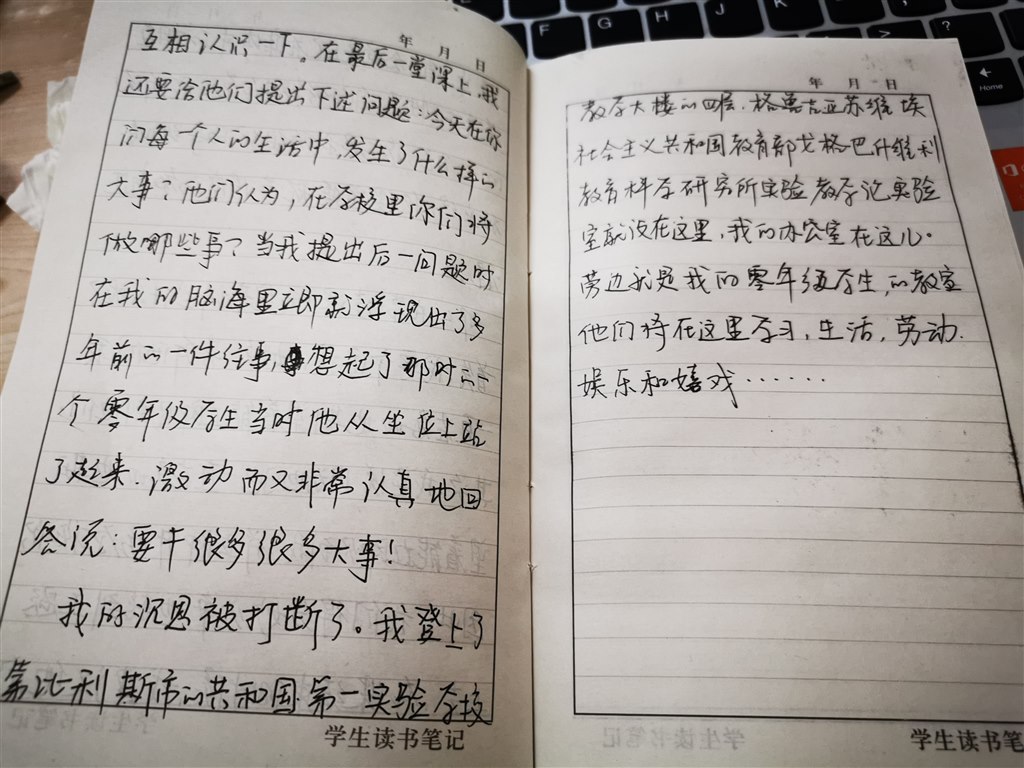 年 月 日
互相认识一下。在最后一堂课上,我
还要给他们提出下述问题:今天在你
们每一个人的生活中,发生了什么样的
大事?他们认为,在学校里你们将
做哪些事?当我提出后一问题时
在我的脑海里立即就浮现出了多
年前的一件往事,想起了那时的一
个零年级学生当时他从坐位上站
了起来.激动而又非常认真地回
答说:要干很多很多大事!
我的沉思被打断了。我登上了
第比利斯市的共和国第一实验学校
学生读书笔记
年 月 日
教学大楼的四层.格鲁吉亚苏维埃
社会主义共和国教育部戈格巴什维利
教育科学研究所实验教学论实验
室就设在这里,我的办公室在这儿.
旁边就是我的零年级学生,的教室
他们将在这里学习,生活,劳动.
娱乐和嬉戏……
学生读书笔
F4
F5
F6
F7
Home